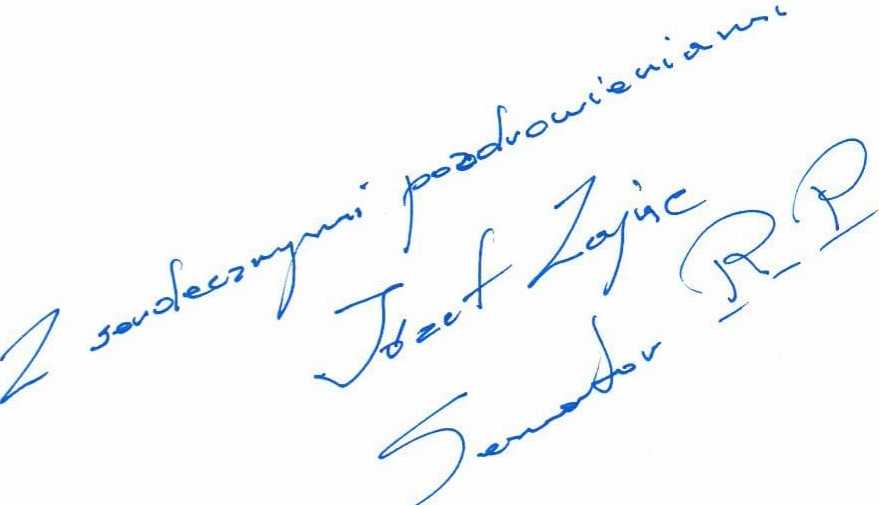 Z serdecznymi pozdrowieniami
Józef Zając
Senator RP